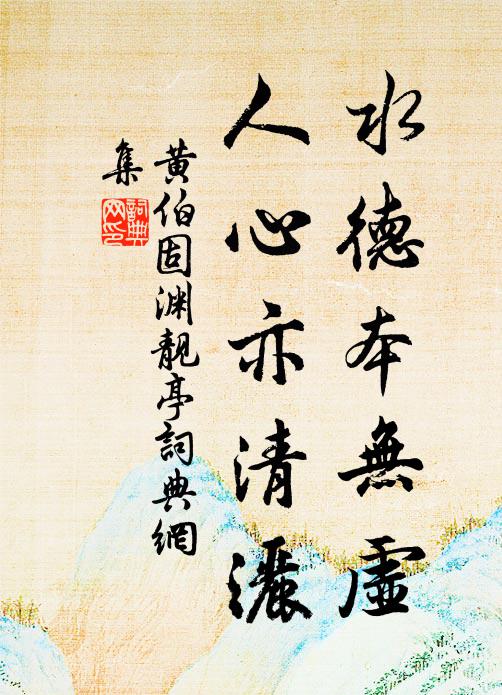 水德本無虛
人心亦清灑
黃伯固淵靚亭詞典網
集
詞典
网印